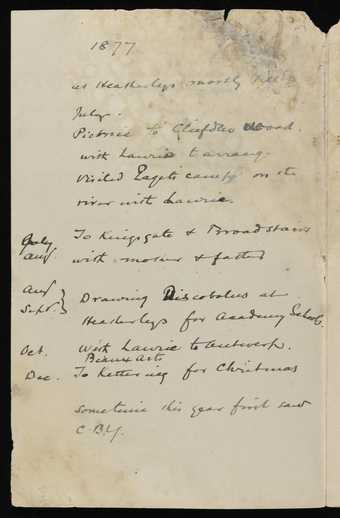 1877
at Heatherleys mostly till
July.
Picnic to Cliefden Wood.
with Laurie
visited camp on the
river with Laurie.
July To Kingsgate & Broadstairs
Aug. with mother & father
Aug } Drawing Discobolus at
Sept. } Heatherleys for Academy Schools.
Oct. With Laurie to Antwerp.
Beaux Arts
Dec. To Kettering for Christmas
Sometime this year first saw